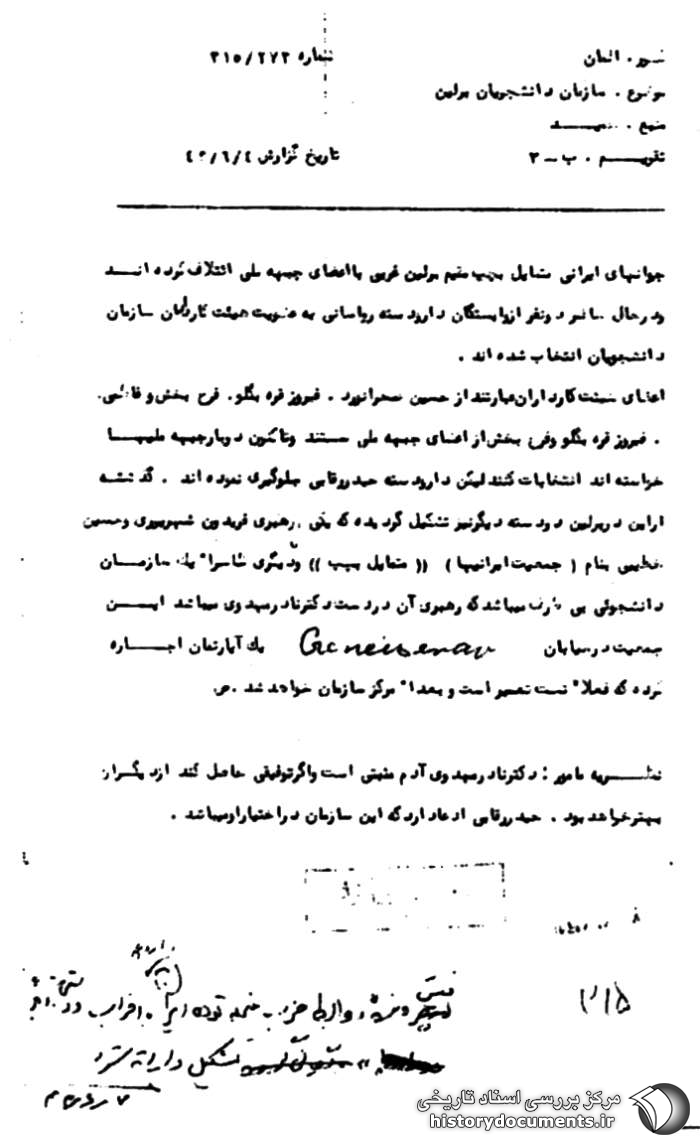 کشور . المان شماره ۳۱۵/۲۷۳
موضوع . سازمان دانشجویان برلین
منبع .
تقویم . ب - ۳ تاریخ گزارش ۴۲/۶/۴
جوانهای ایرانی متمایل بچپ مقیم برلین غربی با اعضای جبهه ملی ائتلاف کرده اند
ودرحال حاضر دونفر ازوابستگان دارودسته رواسانی به عضویت هیئت کارداران سازمان
دانشجویان انتخاب شده اند .
اعضای هیئت کارداران عبارتند از حسین صحرانورد . فیروز قره بگلو . فرح بخش و
. فیروز قره بگلو وفرح بخش از اعضای جبهه ملی هستند وتاکنون دوبارجبهه ملیها
خواسته اند انتخابات کنند لیکن دارودسته حیدررقابی جلوگیری نموده اند . گذشته
ازاین دربرلین دودسته دیگرنیز تشکیل گردیده که یکی رهبری فریدون شهریوری وحسین
خطیبی بنام ( جمعیت ایرانیها ) (( متمایل بچپ )) ودیگری خاصرا" یک سازمان
دانشجوئی بی طرف میباشد که رهبری آن دردست دکترنادرسهدوی میباشد این
جمعیت درخیابان Gneisenau یک آپارتمان اجاره
کرده که فعلا" تحت تعمیر است و بعدا" مرکز سازمان خواهد شد .ص
نظریه مامور : دکترنادرسهدوی آدم مثبتی است واگرتوفیقی حاصل کند ازدیگران
بهترخواهد بود . حیدررقابی ادعا دارد که این سازمان دراختیار اومیباشد .
۳۱۵
روابط حزب منحله توده ایران
تشکیل و ارائه شود
مرکز بررسی اسناد تاریخی
historydocuments.ir